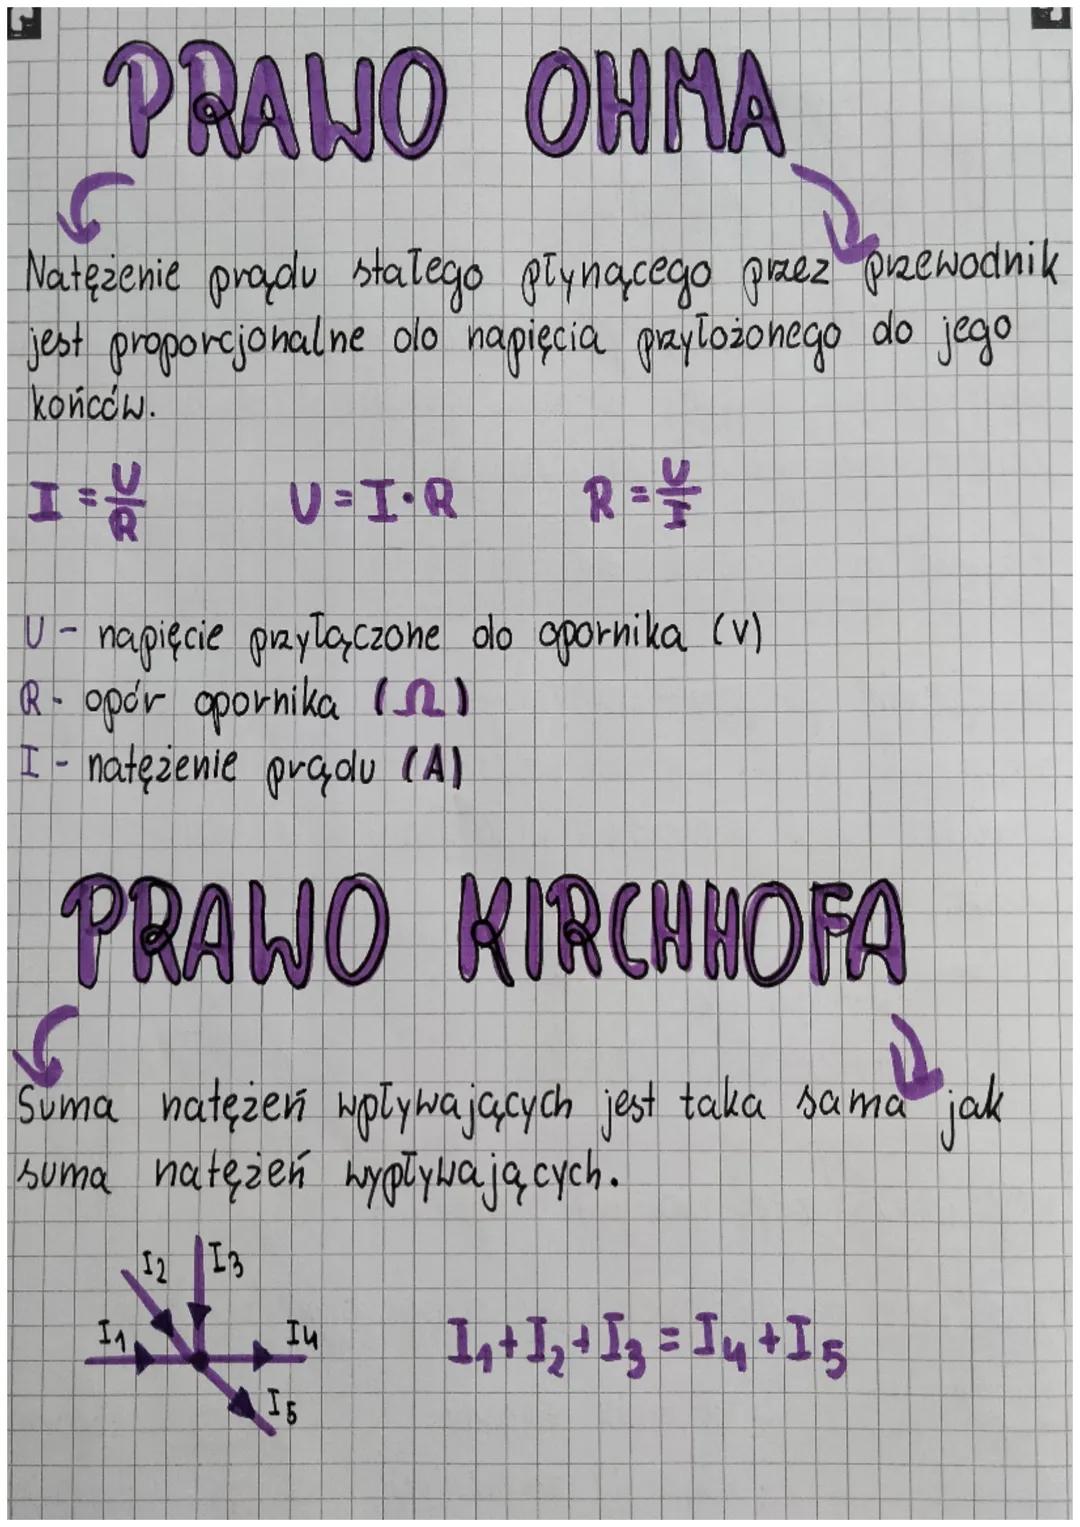 PRAWO OHMA
Natężenie prądu stałego płynącego przez przewodnik
jest proporcjonalne do napięcia przyłożonego do jego
końców.
I = U/R U = I · R R = U/I
U - napięcie przyłączone do opornika (V)
R - opór opornika (Ω)
I - natężenie prądu (A)
PRAWO KIRCHHOFA
Suma natężeń wpływających jest taka sama jak
suma natężeń wypływających.
I₂ I₃
I₁ I₄
I₅
I₁ + I₂ + I₃ = I₄ + I₅